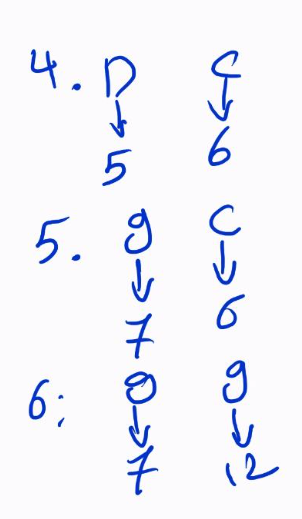 4. D C
↓ ↓
5 6
5. g C
↓ ↓
7 6
6: g g
↓ ↓
7 12